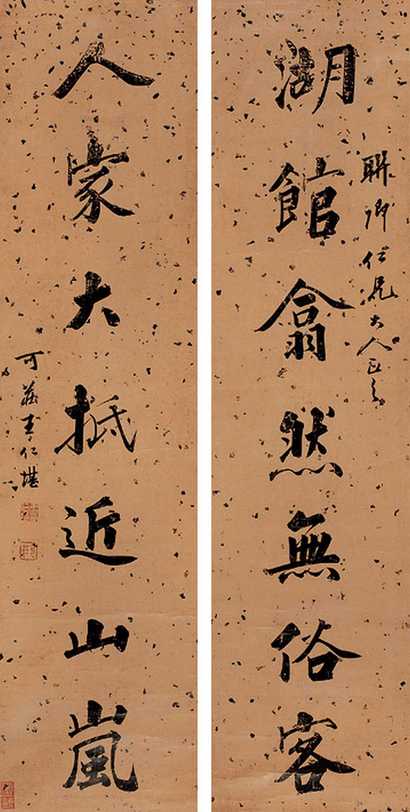 聯卿仁兄大人正之
湖館翕然無俗客
人家大抵近山嵐
可莊王仁堪